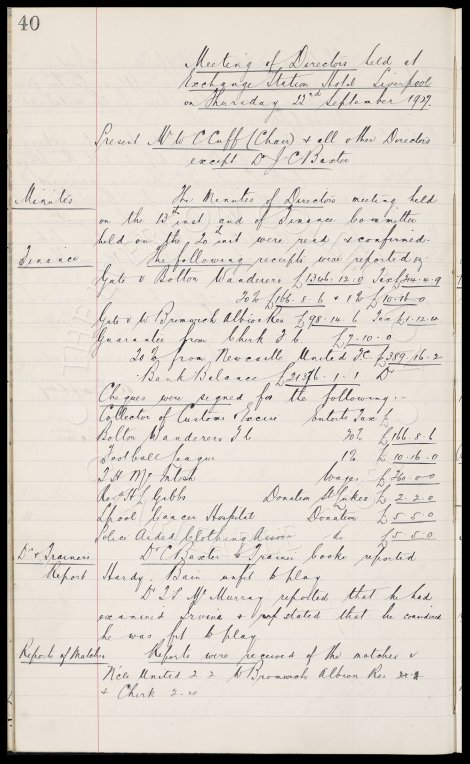 40
Meeting of Directors held at
Exchange Station Hotel Liverpool
on Thursday 22nd September 1927.
Present Mr W C Cuff (Chair) & all other Directors
except Dr J C Baxter
Minutes The Minutes of Directors meeting held
on the 13th inst and of Finance Committee
held on the 20th inst were read & confirmed.
Finance The following receipts were reported viz
Gate v Bolton Wanderers £1346.12.0 Tax £314.4.9
20% £166.8.6 & 1% £10.16.0
Gate v W Bromwich Albion Res £98.14.6 Tax £1.12.4
Guarantee from Chirk F.C. £7.10.0
20% from Newcastle United FC. £389.16.2
Bank Balance £21376.1.1 Dr
Cheques were signed for the following:-
Collector of Customs & Excise Enterts Tax £
Bolton Wanderers F C 20% £166.8.6
Football League 1% £10.16.0
T H McIntosh Wages £360.0.0
Rev H S Gibbs Donation St Lukes £2.2.0
Lpool Cancer Hospital Donation £5.5.0
Police Aided Clothing Assoc do £5.5.0
Dr & Trainers Dr C Baxter & Trainer Cooke reported
Report Hardy. Bain unfit to play.
Dr T S McMurray reported that he had
examined Irvine & stated that he considered
he was fit to play.
Reports of Matches Reports were received of the matches v
N'cle United 2.2. W Bromwich Albion Res
& Chirk 2.4